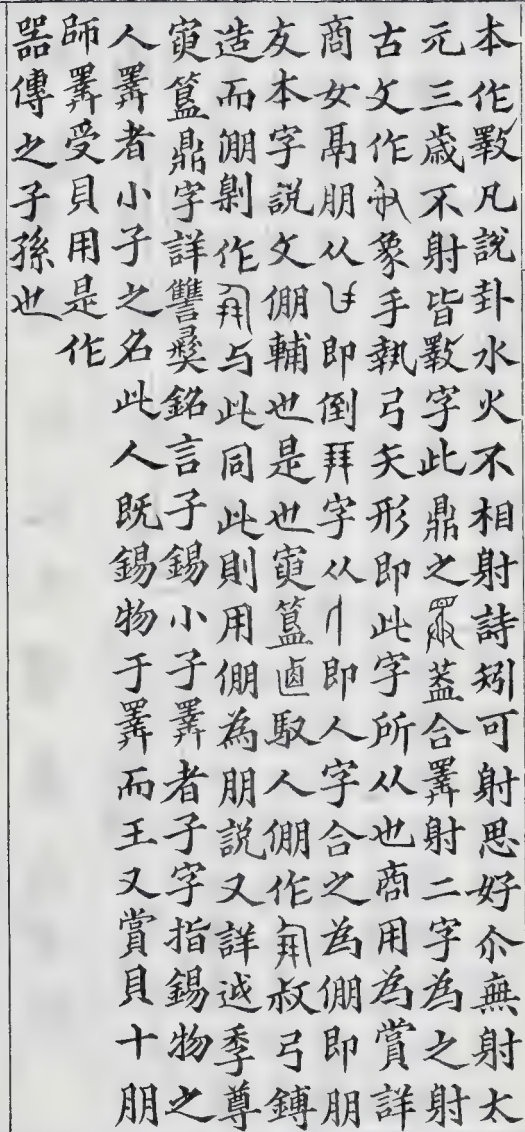 本作斁凡說卦水火不相射詩矧可射思好尒無射太
元三歲不射皆斁字此鼎之葢合射二字為之射
古文作象手執弓矢形即此字所从也商用為賞詳
商女鬲朋从即倒拜字从即人字合之為倗即朋
友本字說文倗輔也是也簋卣馭人倗作叔弓鎛
造而淜剝作与此同此則用倗為朋說又詳季尊
簋鼎字詳讐彝銘言子錫小子者子字指錫物之
人者小子之名此人既錫物于而王又賞貝十朋
師受貝用是作
器傳之子孫也